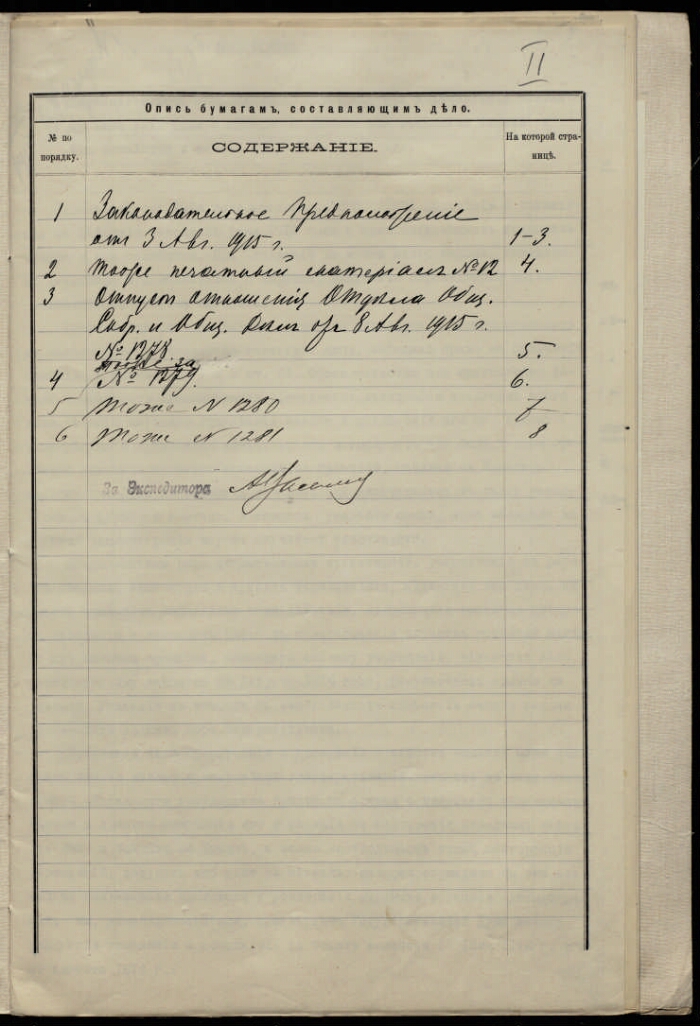 II
Опись бумагамъ, составляющимъ дѣло.
№ по порядку.
СОДЕРЖАНІЕ.
На которой страницѣ.
1 Законодательное Предположеніе
отъ 3 Авг. 1915 г. 1-3.
2 Тоже печатный матеріалъ № 12 4.
3 Отпускъ отношенія Отдѣла Общ.
Собр. и Общ. Дѣлъ отъ 8 Авг. 1915 г.
№ 1278 5.
тоже за
4 № 1279. 6.
5 Тоже N 1280 7
6 Тоже N 1281 8
За Экспедитора